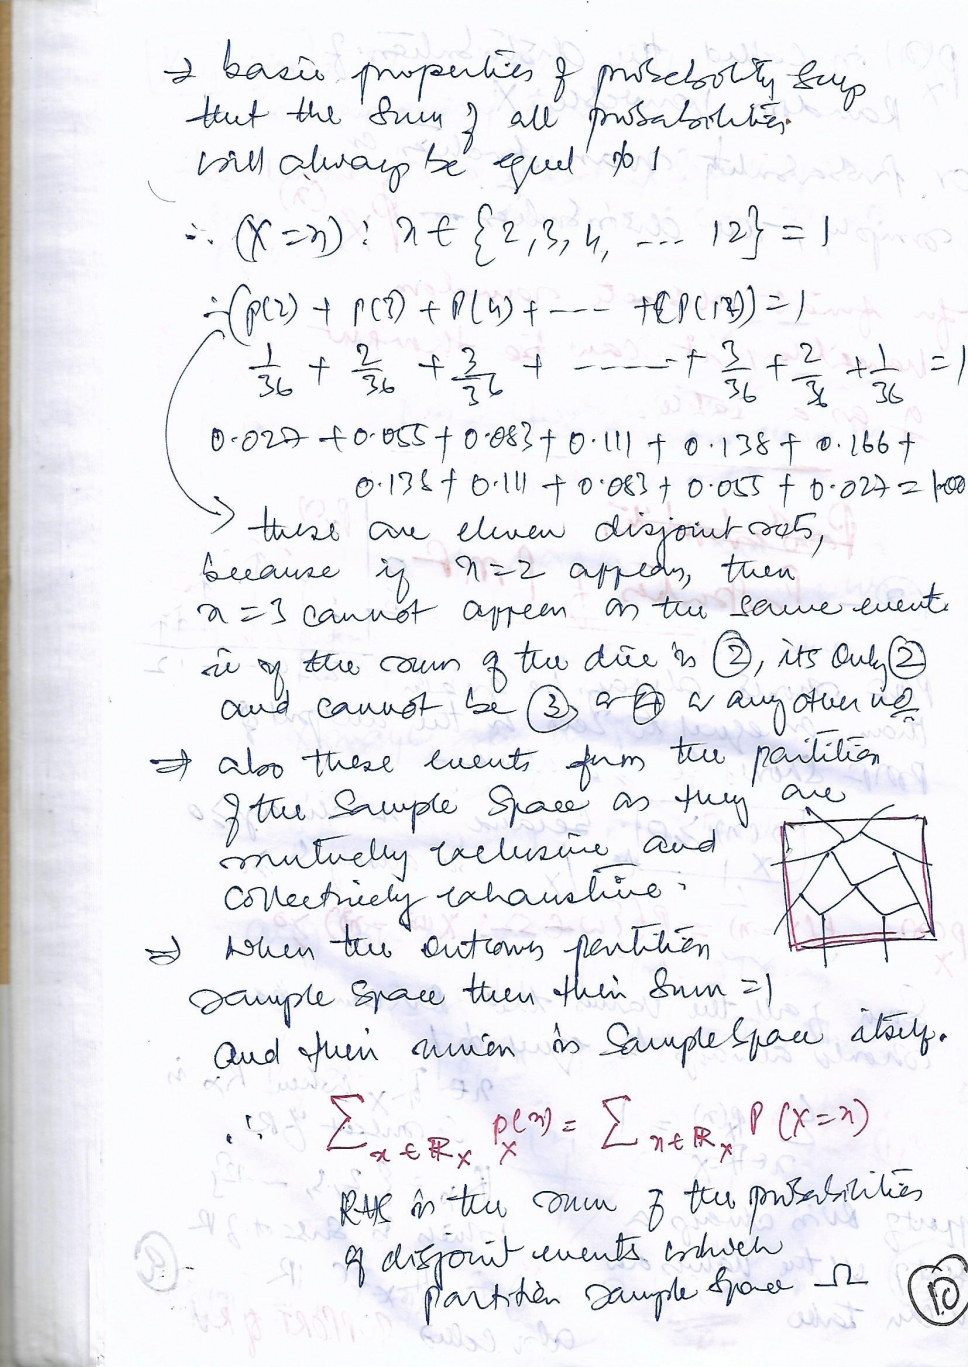 → basic properties of probability says
that the sum of all probabilities
will always be equal to 1
∴ (X=x) : x ∈ {2,3,4, ... 12} = 1
∴ (p(2) + p(3) + p(4) + --- + p(12)) = 1
1/36 + 2/36 + 3/36 + ------ + 3/36 + 2/36 + 1/36 = 1
0.027 + 0.055 + 0.083 + 0.111 + 0.138 + 0.166 +
0.138 + 0.111 + 0.083 + 0.055 + 0.027 = 1.00
these are eleven disjoint sets,
because if x=2 appears, then
x=3 cannot appear in the same event
ie if the sum of the dice is ②, its only ②
and cannot be ③ or ④ or any other no
⇒ also these events form the partition
of the sample space as they are
mutually exclusive and
collectively exhaustive.
⇒ when the outcomes partition
sample space then their sum = 1
and their union is sample space itself.
∴ ∑x∈ℝx px(x) = ∑x∈ℝx P(X=x)
RHS is the sum of the probabilities
of disjoint events which
partition sample space Ω
10